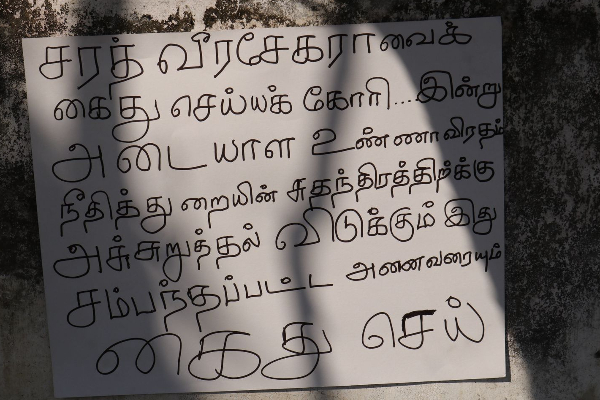 சரத் வீரசேகராவைக்
கைது செய்யக் கோரி...இன்று
அடையாள உண்ணாவிரதம்
நீதித்துறையின் சுதந்திரத்திற்க்கு
அச்சுறுத்தல் விடுக்கும் இது
சம்பந்தப்பட்ட அனைவரையும்
கைது செய்